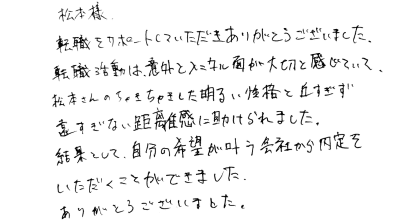 松本様
転職をサポートしていただきありがとうございました。
転職活動は、意外とメンタル面が大切と感じていて、
松本さんのちゃきちゃきした明るい性格と近すぎず
遠すぎない距離感に助けられました。
結果として、自分の希望が叶う会社から内定を
いただくことができました。
ありがとうございました。